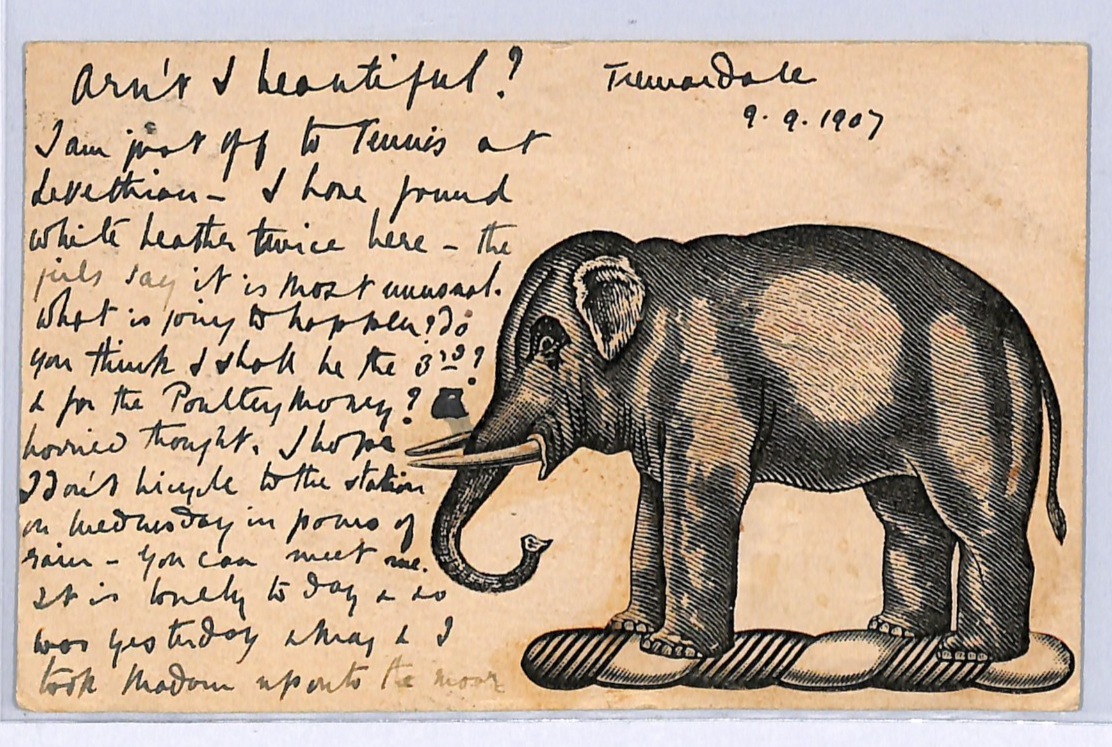 Arn't I beautiful?
Tremardale
9.9.1907
I am just off to Tennis at
Levethian - I have found
white heather twice here - the
girls say it is most unusual.
What is going to happen? do
you think I shall be the 3rd?
& for the Poultry Money?
horrid thought. I hope
I don't bicycle to the station
on Wednesday in pours of
rain - You can meet me.
It is lovely to day & so
was yesterday & I
took Madam up onto the moor